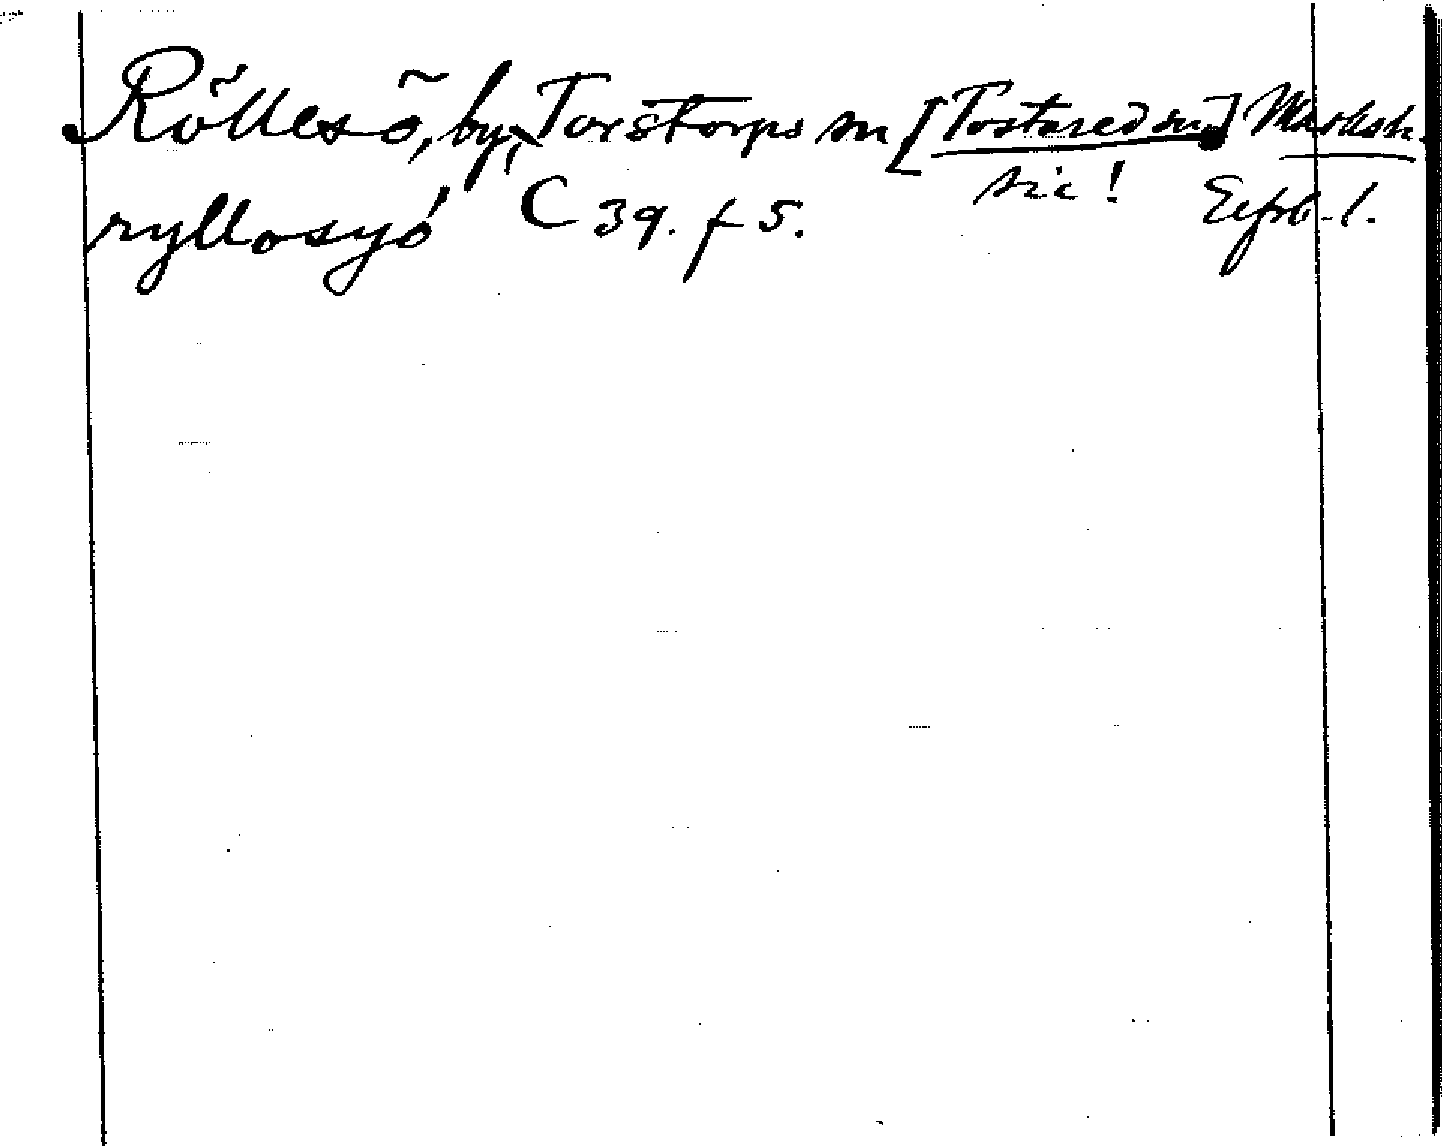 Röllesö, by, Torstorps sn [Tostared sn] Marksh.
sic!
ryllosyó C 39. f 5. Eefsb. l.